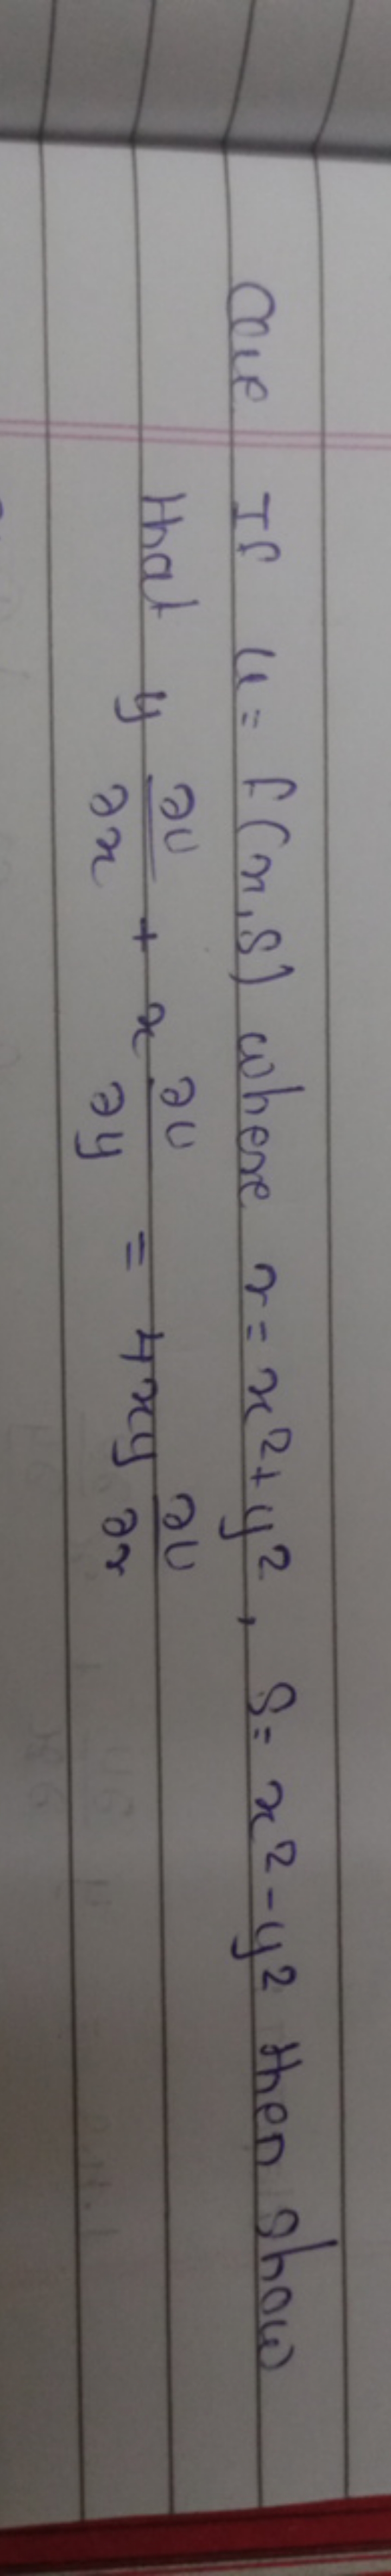 Que If u = f(r, s) where r = x² + y², s = x² - y² then show
that y ∂u/∂x + x ∂u/∂y = 4xy ∂u/∂r